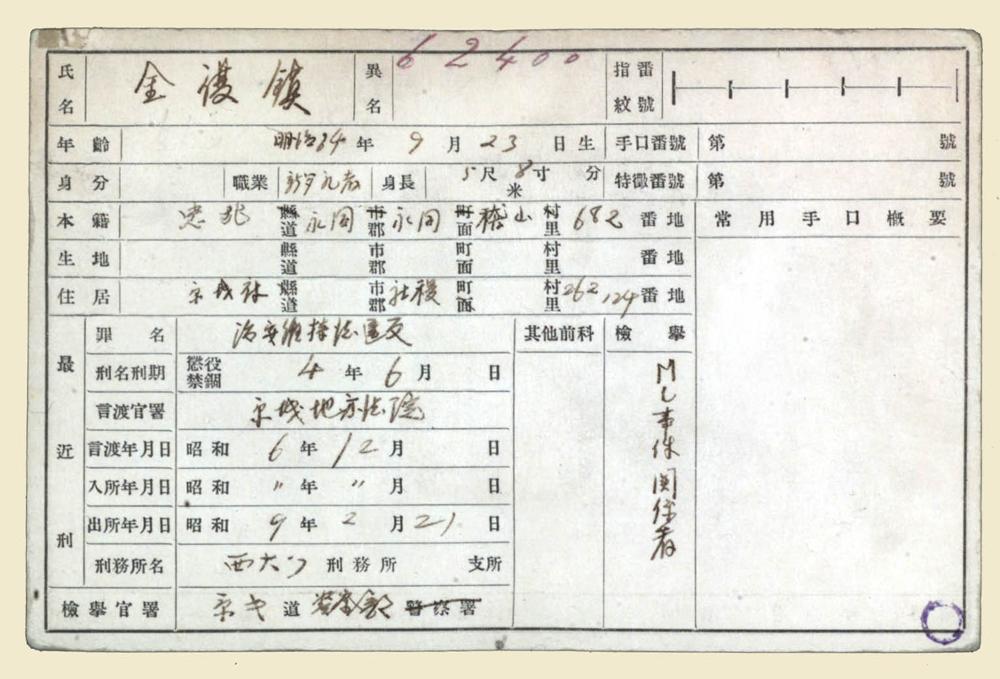 62400
氏名 金 護 鎮 異名 指紋番號
年齡 明治34年9月23日生 手口番號 第 號
身分 職業 身長 5尺8寸 分 米 特徵番號 第 號
本籍 忠北 縣道 永同 市郡 永同 町面 稽山 村里 682 番地 常用手口概要
生地 縣道 市郡 町面 村里 番地
住居 京城府 縣道 市郡 社稷 町面 村里 262 124 番地
最近刑
罪名 治安維持法違反 其他前科 檢擧
刑名刑期 懲役 禁錮 4年6月 日
言渡官署 京城地方法院
言渡年月日 昭和6年12月 日
入所年月日 昭和 〃年 〃月 日
出所年月日 昭和9年2月21日
刑務所名 西大門 刑務所 支所
檢擧官署 京キ道 警察部 警察署
ML事件関係者